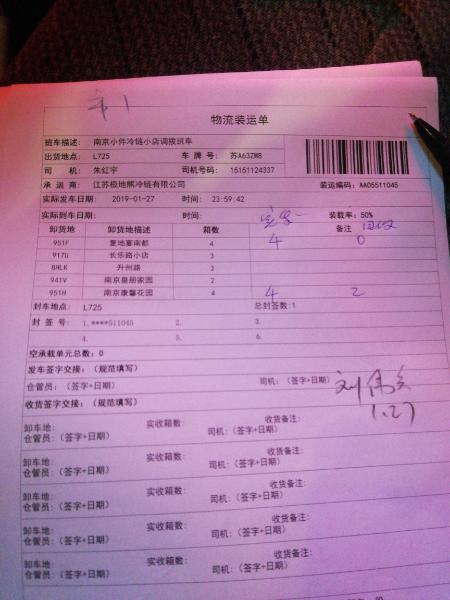 车1
物流装运单
班车描述: 南京小件冷链小店调拨班车
出货地点: L725 车 牌 号: 苏A63ZM8
司 机: 朱红宇 司机号码: 15151124337
承 运 商: 江苏极地熊冷链有限公司 装运编码: AA05511045
实际发车日期: 2019-01-27 时间: 23:59:42
实际到车日期: 时间: 装载率: 50%
卸货地 卸货地描述 箱数 备注 回收
951F 复地宴南都 4 4 0
917U 长乐路小店 3
8HLK 升州路 3
941V 南京皇册家园 2
951H 南京康馨花园 4 4 2
封车地点: L725 总封签数:1
封 签 号: 1.****511045 2. 3.
4. 5. 6.
空承载单元总数: 0
发车签字交接: (规范填写)
仓管员: (签字+日期) 司机: (签字+日期) 刘伟
1.27
收货签字交接: (规范填写)
卸车地: 实收箱数: 收货备注:
仓管员: (签字+日期) 司机: (签字+日期)
卸车地: 实收箱数: 收货备注:
仓管员: (签字+日期) 司机: (签字+日期)
卸车地: 实收箱数: 收货备注:
仓管员: (签字+日期) 司机: (签字+日期)
卸车地: 实收箱数: 收货备注:
仓管员: (签字+日期) 司机: (签字+日期)
卸车地: 实收箱数: 收货备注:
仓管员: (签字+日期) 司机: (签字+日期)